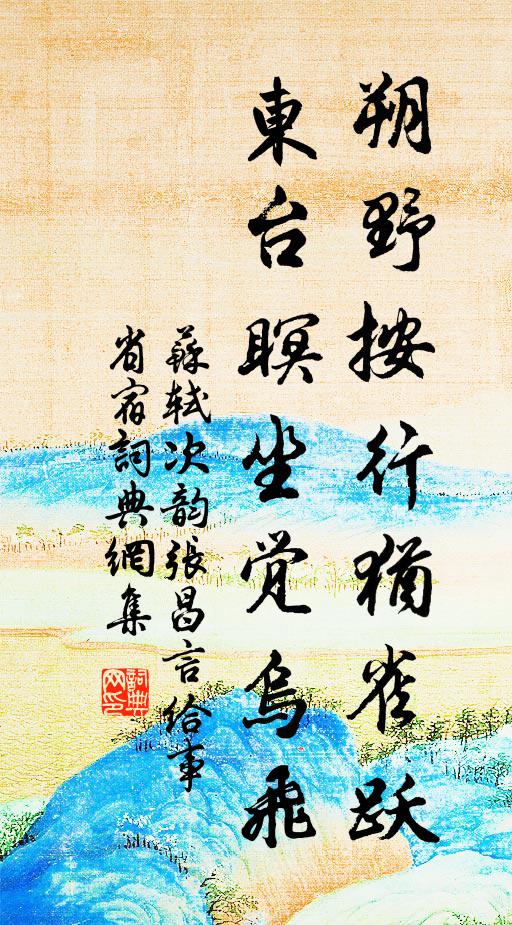 朔野按行犹雀跃
東台瞑坐觉烏飛
蘇轼次韵張昌言给事
省宿詞典網集
詞典
网印